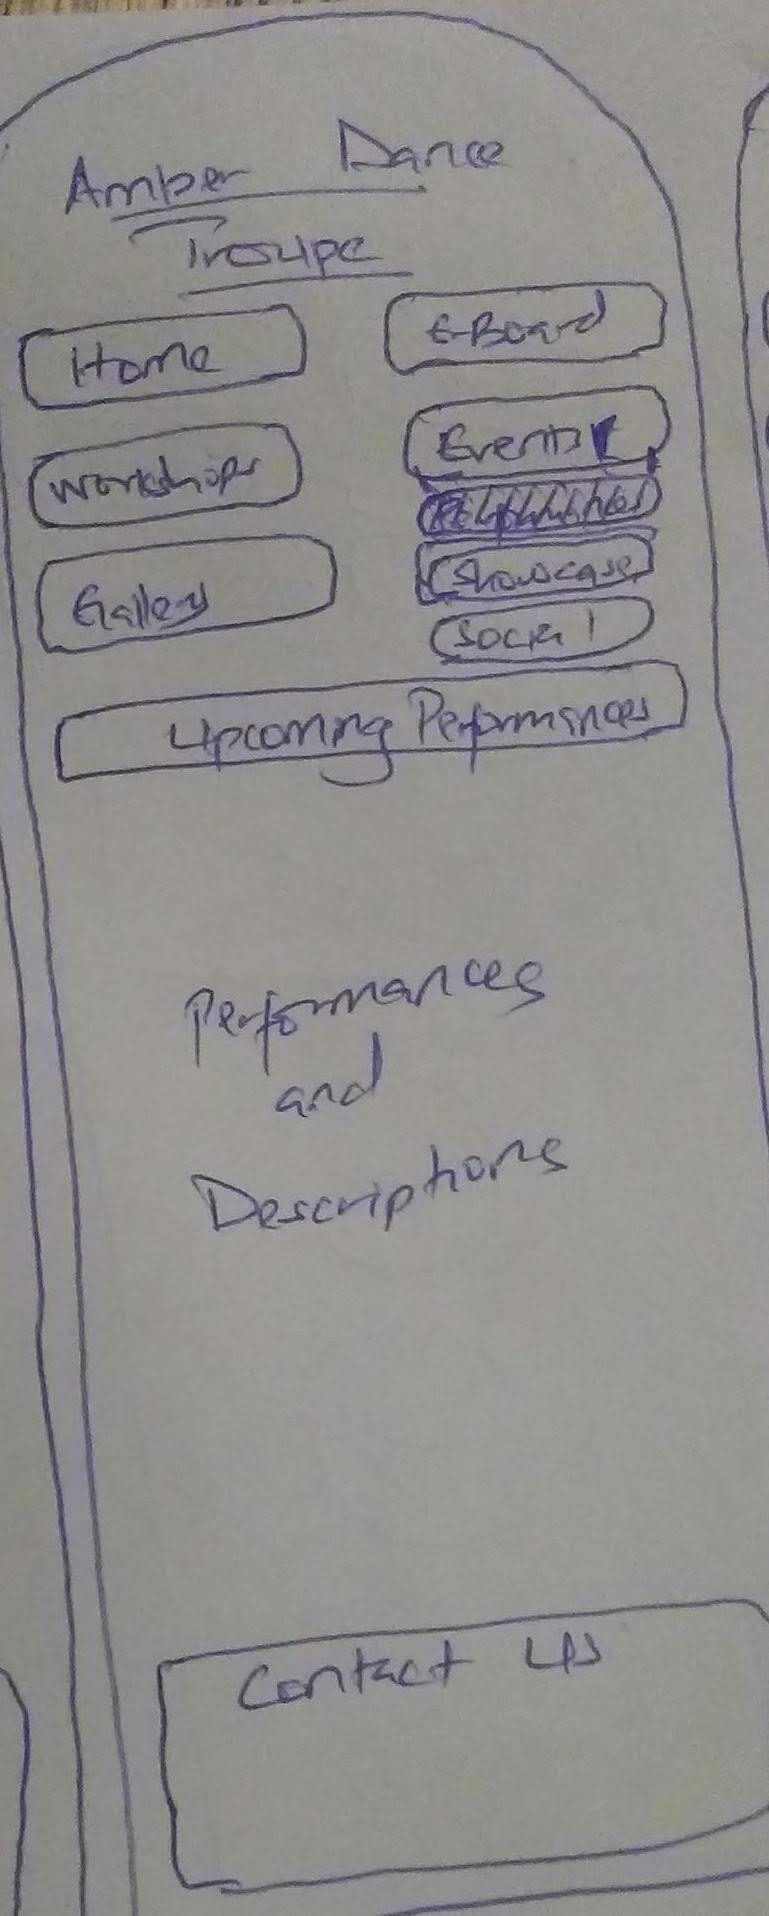 Amber Dance
Troupe
Home
E-Board
Workshops
Events
Gallery
Showcase
Social
Upcoming Performances
Performances
and
Descriptions
Contact Us